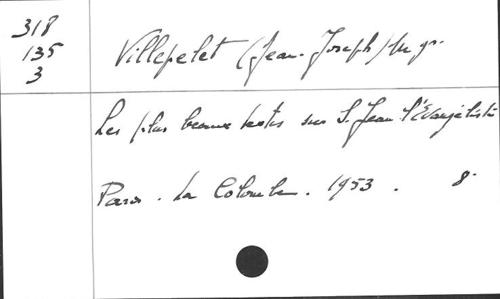 318
135
3
Villepelet (Jean-Joseph) Mgr.
Les plus beaux textes sur S. Jean l'Evangéliste
Paris. La Colombe. 1953. 8°